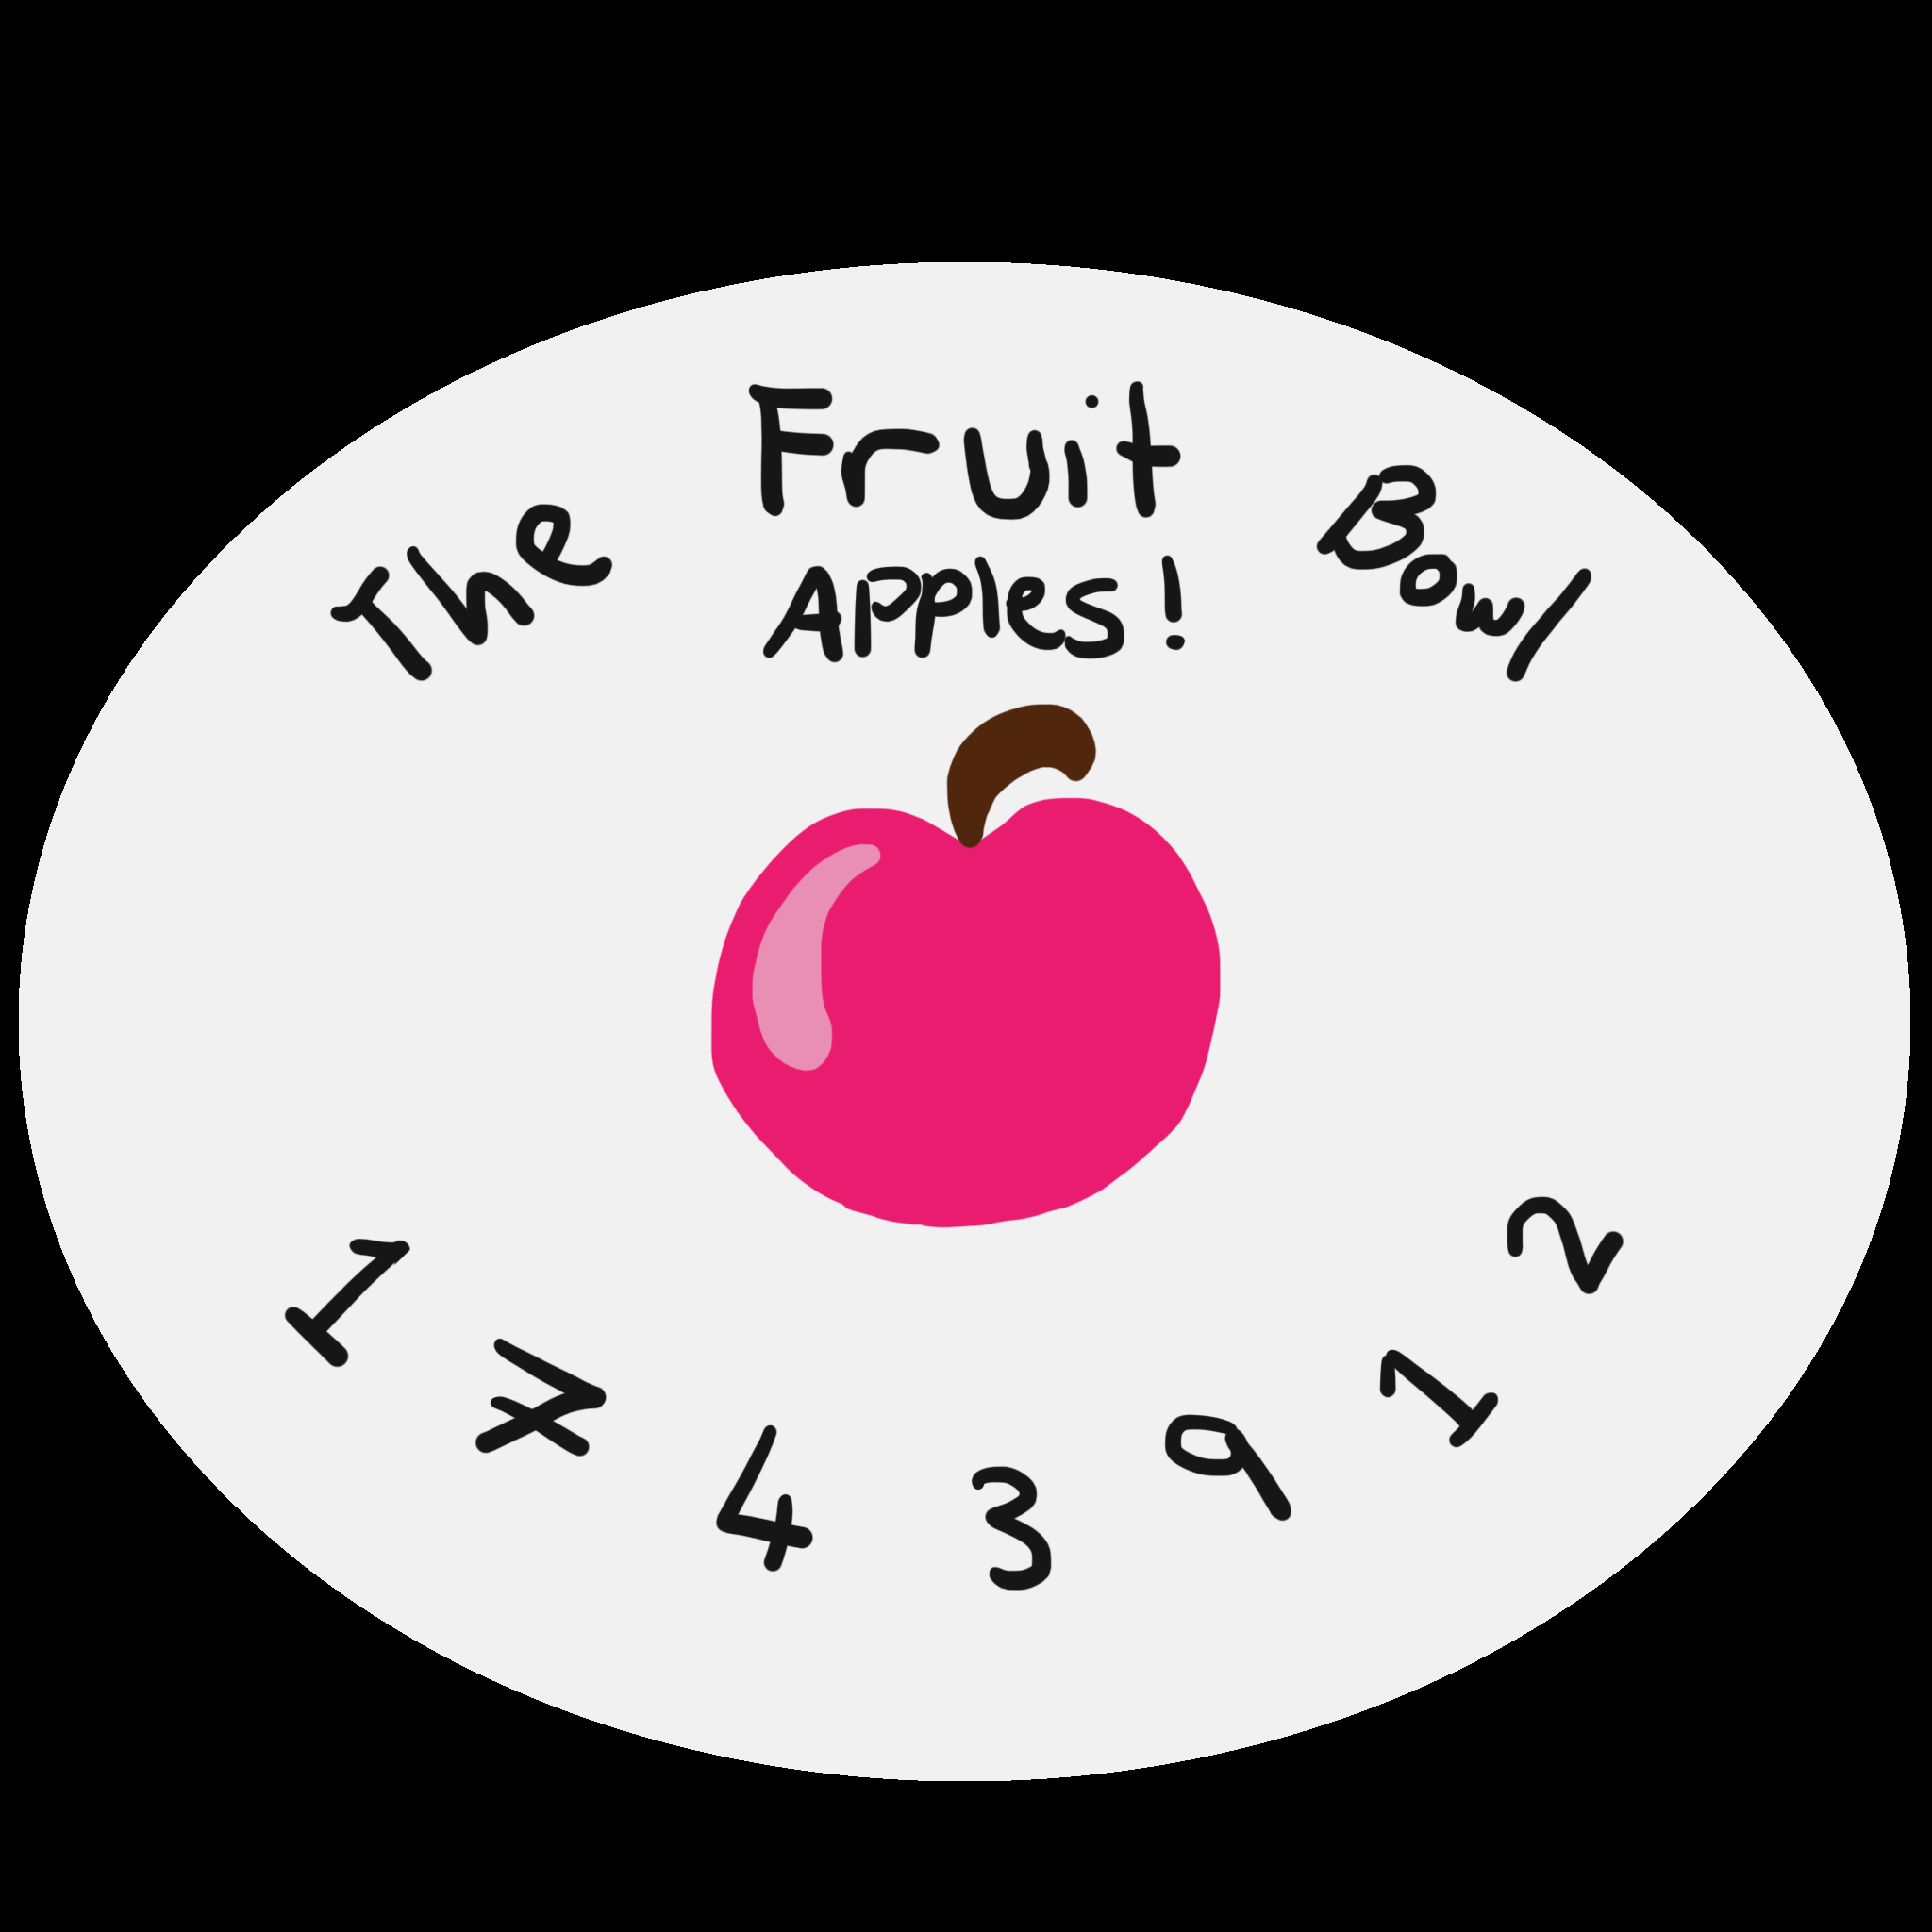 The Fruit Bowl
APPles!
1743912